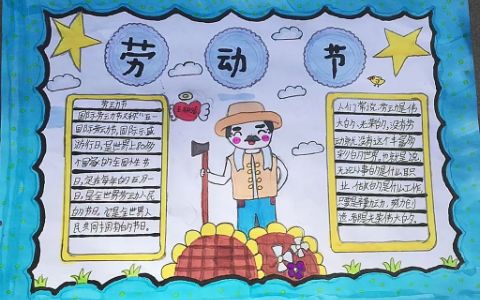 劳动节
劳动节
国际劳动节又称"五一
国际劳动节,国际示威
游行日,是世界上80多
个国家的全国性节
日,定在每年的五月一
日,是全世界劳动人民
的节日,它是全世界人
民共同拥有的节日。
人们常说:劳动是伟
大的、无私的,没有劳
动就没有这个丰富多
彩的世界,也就是说,
无论从事的是什么职
业,做的是什么工作
只要是辛勤劳动、努力创
造,都是光荣伟大的。